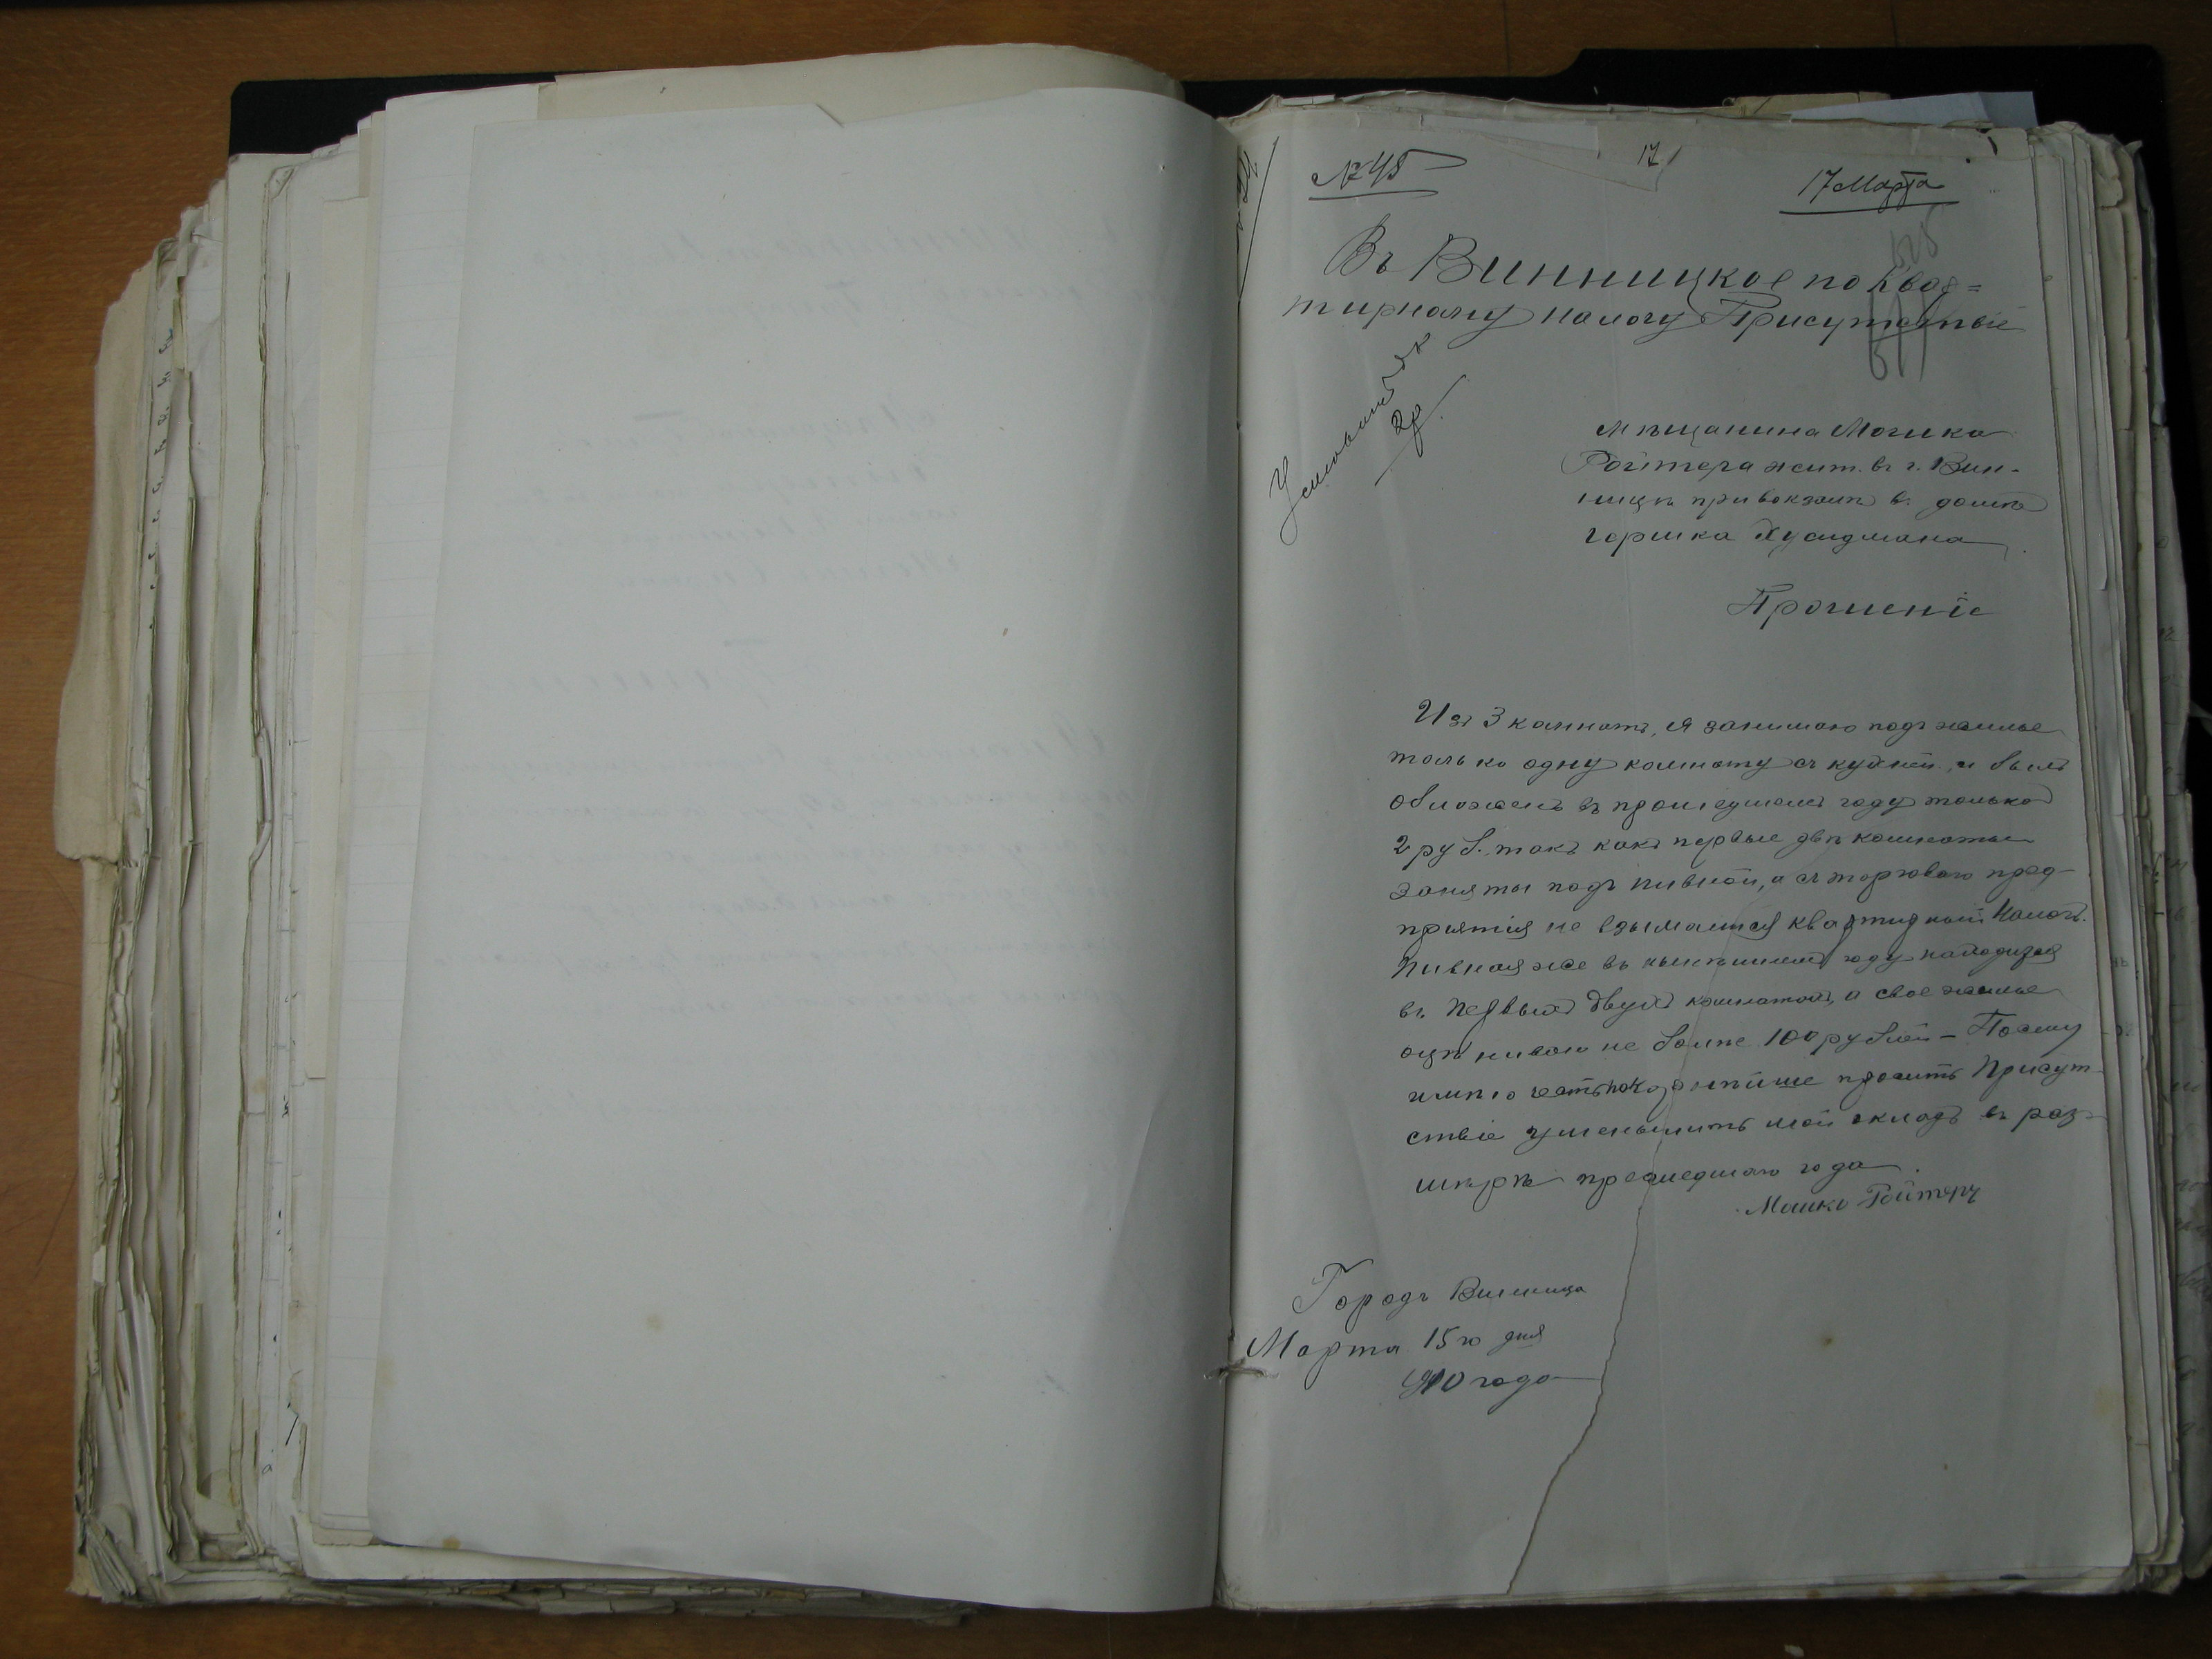 № 45
17
17 Марта
Въ Винницкое по Квар=
тирному налогу Присутствіе
2р.
Мѣщанина Мошка
Ройтера жит. въ г. Вин-
ницѣ при вокзалѣ въ домѣ
Гершка Хусидмана
Прошеніе
Изъ 3 комнатъ, я занимаю подъ жилье
только одну комнату съ кухней, и былъ
обложенъ въ прошедшемъ году только
2 руб. такъ какъ первые двѣ комнаты
заняты подъ пивной, а съ торговаго пред-
пріятія не взымается квартирный налогъ.
Пивная же въ нынѣшнемъ году находится
въ первыхъ двухъ комнатахъ, а свое жилье
оцѣниваю не болѣе 100 рублей – Посему
имѣю честь покорнѣйше просить Присут-
ствіе уменьшить мой окладъ въ раз-
мѣрѣ прошедшаго года.
Мошко Ройтеръ
Городъ Винница
Марта 15 го дня
1910 года